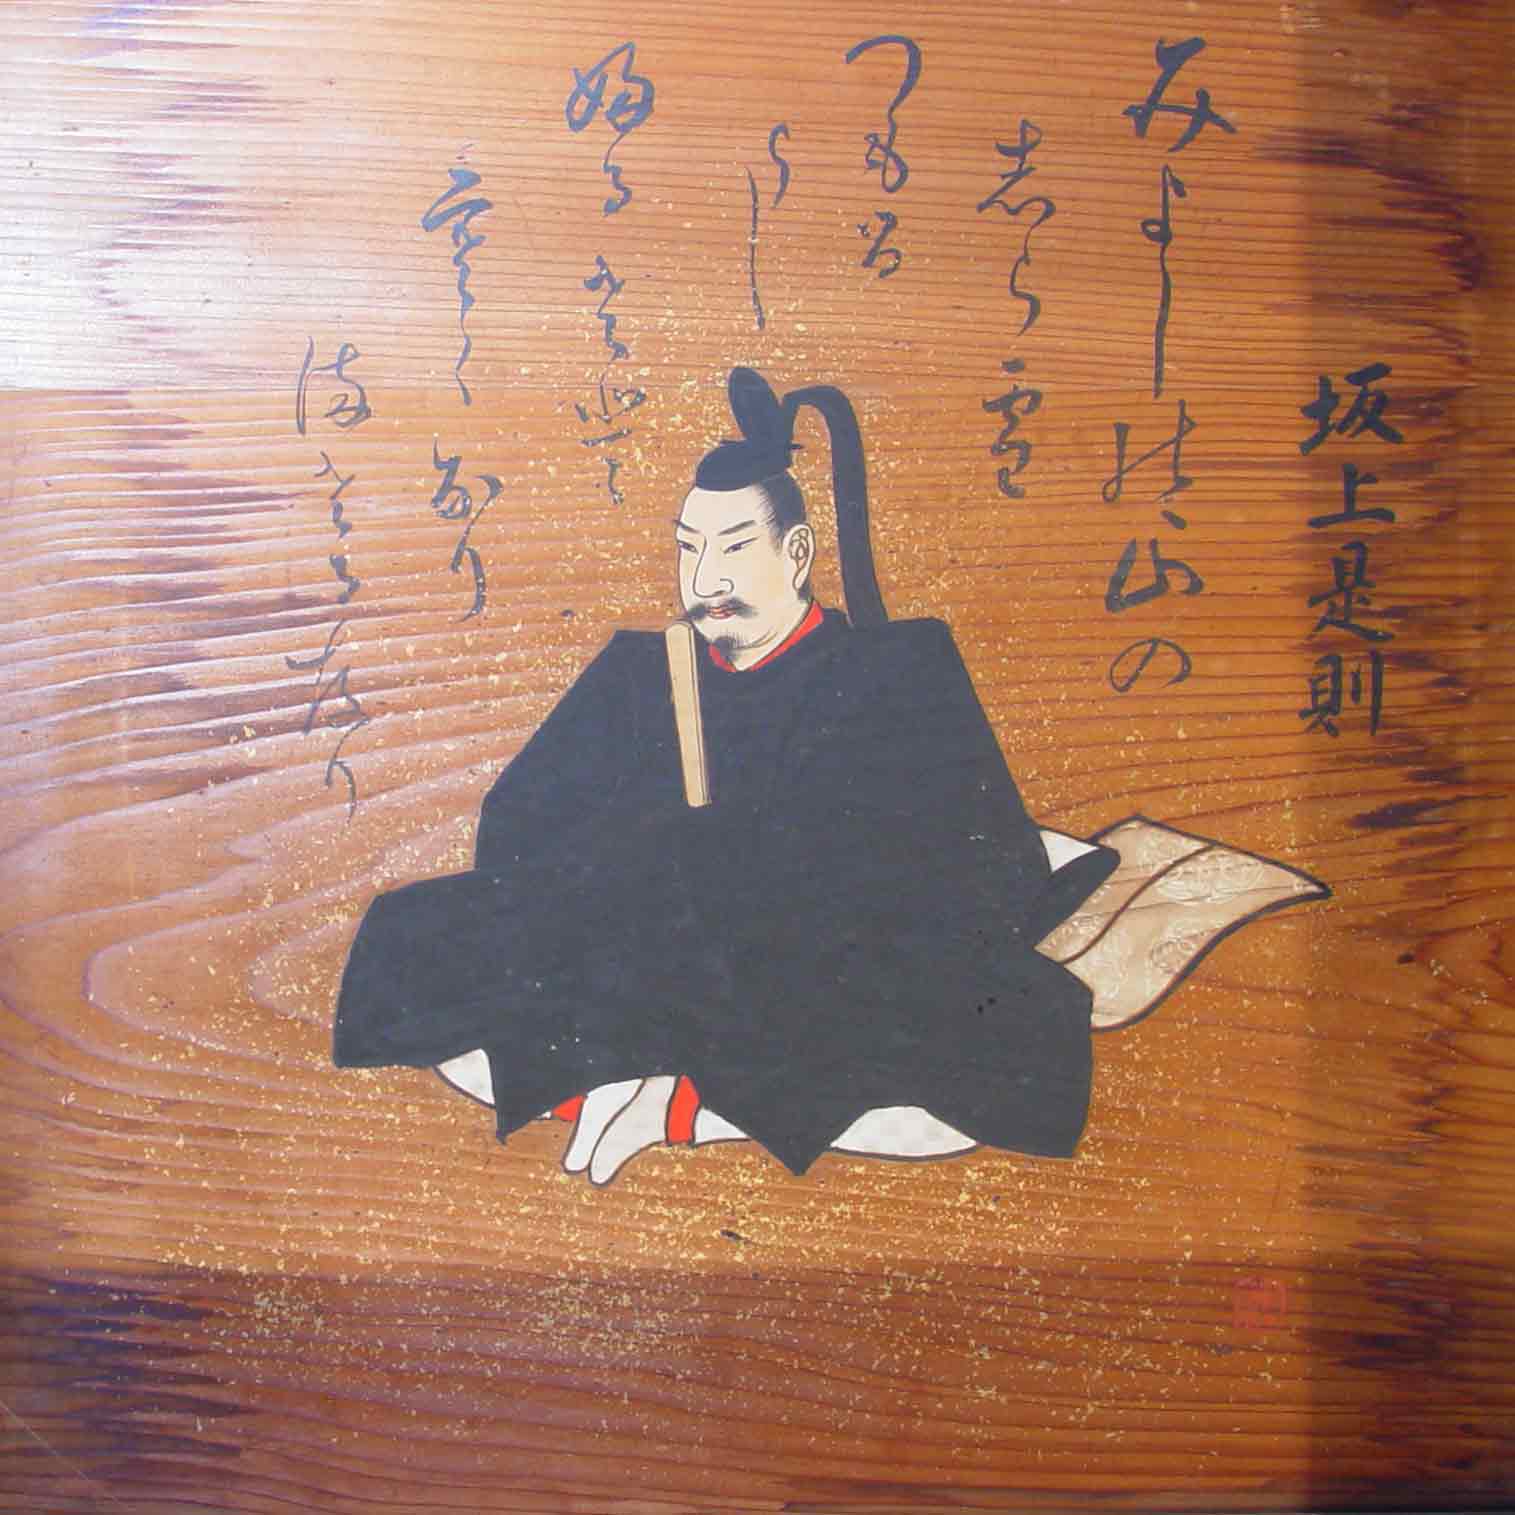 坂上是則
みよしのゝ山の
志ら雪
つもる
らし
婦るさと
寒く なり
満さるなり